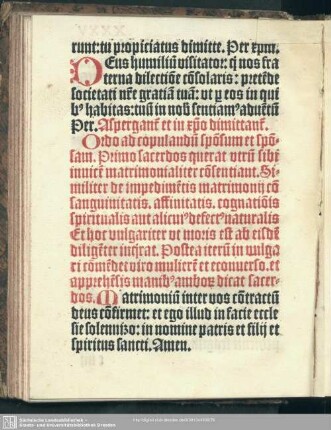 runt: tu propiciatus dimitte. Per xpm̄.
Deus humiliū visitator: q̄ nos fra
terna dilectiōe cōsolaris: pretēde
societati nr̄e gratiā tuā: ut ꝑ eos in qui
bꝰ habitas: tuū in nob̄ sentiamꝰ aduētū
Per. Asperganẗ et in xp̄o dimittanẗ.
Ordo ad copulandū spōsum et spō
sam. Primo sacerdos querat utrū sibi
inuicē matrimonialiter cōsentiant. Si
militer de impedimētis matrimonij cō
sanguinitatis, affinitatis, cognatiōis
spiritualis aut alicuiꝰ defectꝰ naturalis
Et hoc vulgariter ut moris est ab eisdē
diligēter inq̄rat. Postea iterū in vulga
ri cōmēdet viro mulierē et econuerso. et
apprehēsis manibꝰ amborꝝ dicat sacer
dos. Matrimoniū inter vos cōtractū
deus cōfirmet: et ego illud in facie eccle
sie solemnizo: in nomine patris et filij et
spiritus sancti. Amen.